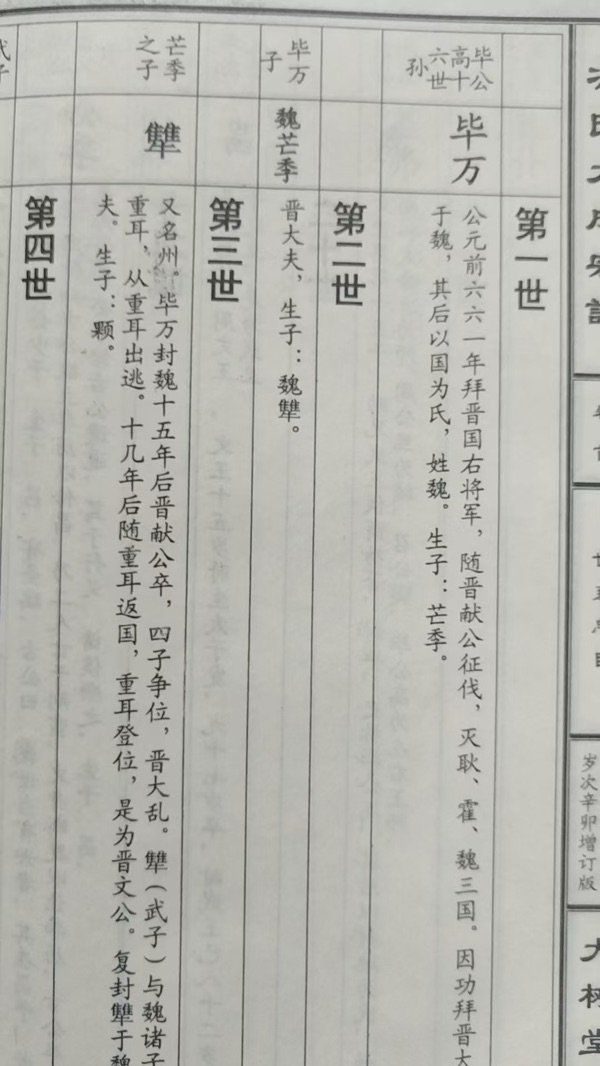 岁次辛卯增订版
大树堂
第一世
毕公
高十
六世
孙
毕万
公元前六六一年拜晋国右将军，随晋献公征伐，灭耿、霍、魏三国。因功拜晋大
于魏，其后以国为氏，姓魏。生子：芒季。
第二世
毕万
子
魏芒季
晋大夫，生子：魏犨。
第三世
芒季
之子
犨
又名州。毕万封魏十五年后晋献公卒，四子争位，晋大乱。犨（武子）与魏诸子
重耳，从重耳出逃。十几年后随重耳返国，重耳登位，是为晋文公。复封犨于魏
夫。生子：颗。
第四世
武子